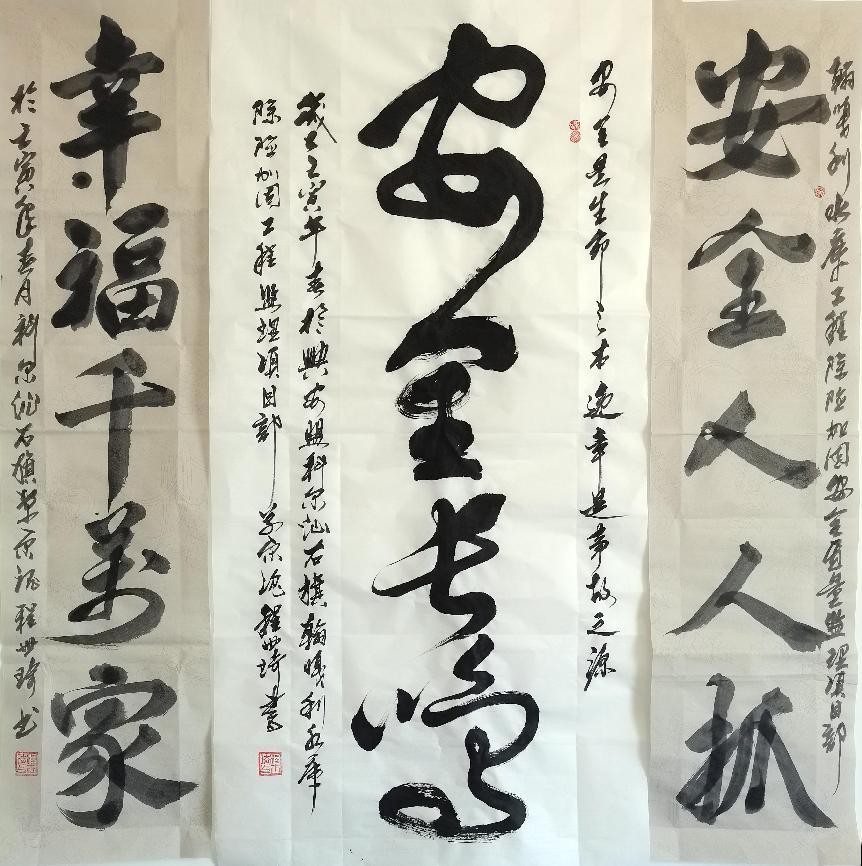 翰嘎利水库工程除险加固安全质量监理项目部
安全人人抓
安全是生命之本违章是事故之源
安全长鸣
岁在壬寅年春於兴安盟科尔沁右旗翰嘎利水库
除险加固工程监理项目部 程世琦書
幸福千萬家
於壬寅年春月科尔沁右旗 程世琦书